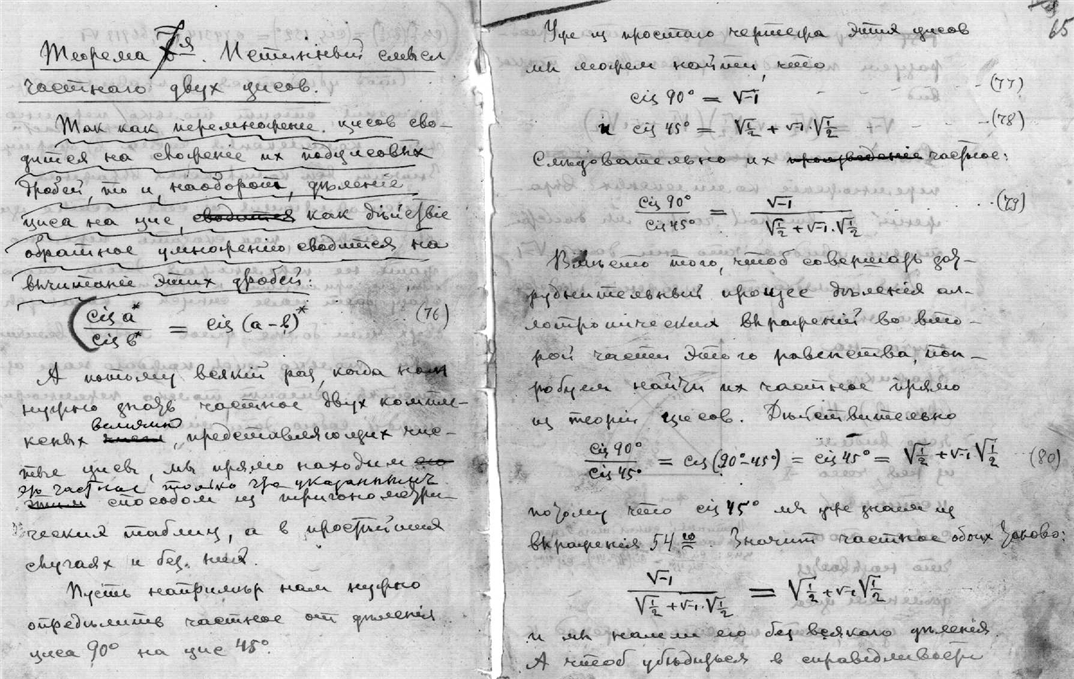 Теорема 7я. Истинный смысл
частнаго двух цисов.
Так как перемножение цисов сво-
дится на сложение их подцисовых
дробей, то и наоборот, деление
циса на цис, сводится как действие
обратное умножению сводится на
вычитание этих дробей:
cis a* / cis b* = cis (a-b)* (76)
А потому всякий раз, когда нам
нужно знать частное двух компле-
ксных величин, представляющих чис-
тые цисы, мы прямо находим
это частное только что указанным
способом из тригонометри-
ческих таблиц, а в простейших
случаях и без них.
Пусть например нам нужно
определить частное от деления
циса 90° на цис 45°.
65
Уже из простого чертежа этих цисов
мы можем найти, что
cis 90° = √-1 - - (77)
и cis 45° = √1/2 + √-1·√1/2 - - (78)
Следовательно их произведение частное:
cis 90° / cis 45° = √-1 / √1/2 + √-1·√1/2 (79)
Вместо того, чтоб совершать зат-
руднительный процес деления ал-
лотропических выражений во вто-
рой части этого равенства, поп-
робуем найти их частное прямо
из теории цисов. Действительно
cis 90 / cis 45° = cis (90°-45°) = cis 45° = √1/2 + √-1 √1/2 (80)
потому что cis 45° мы уже знаем из
выражения 54го. Значит частное обоих таково:
√-1 / √1/2 + √-1·√1/2 = √1/2 + √-1 √1/2
и мы нашли его без всякаго деления.
А чтоб убедиться в справедливости